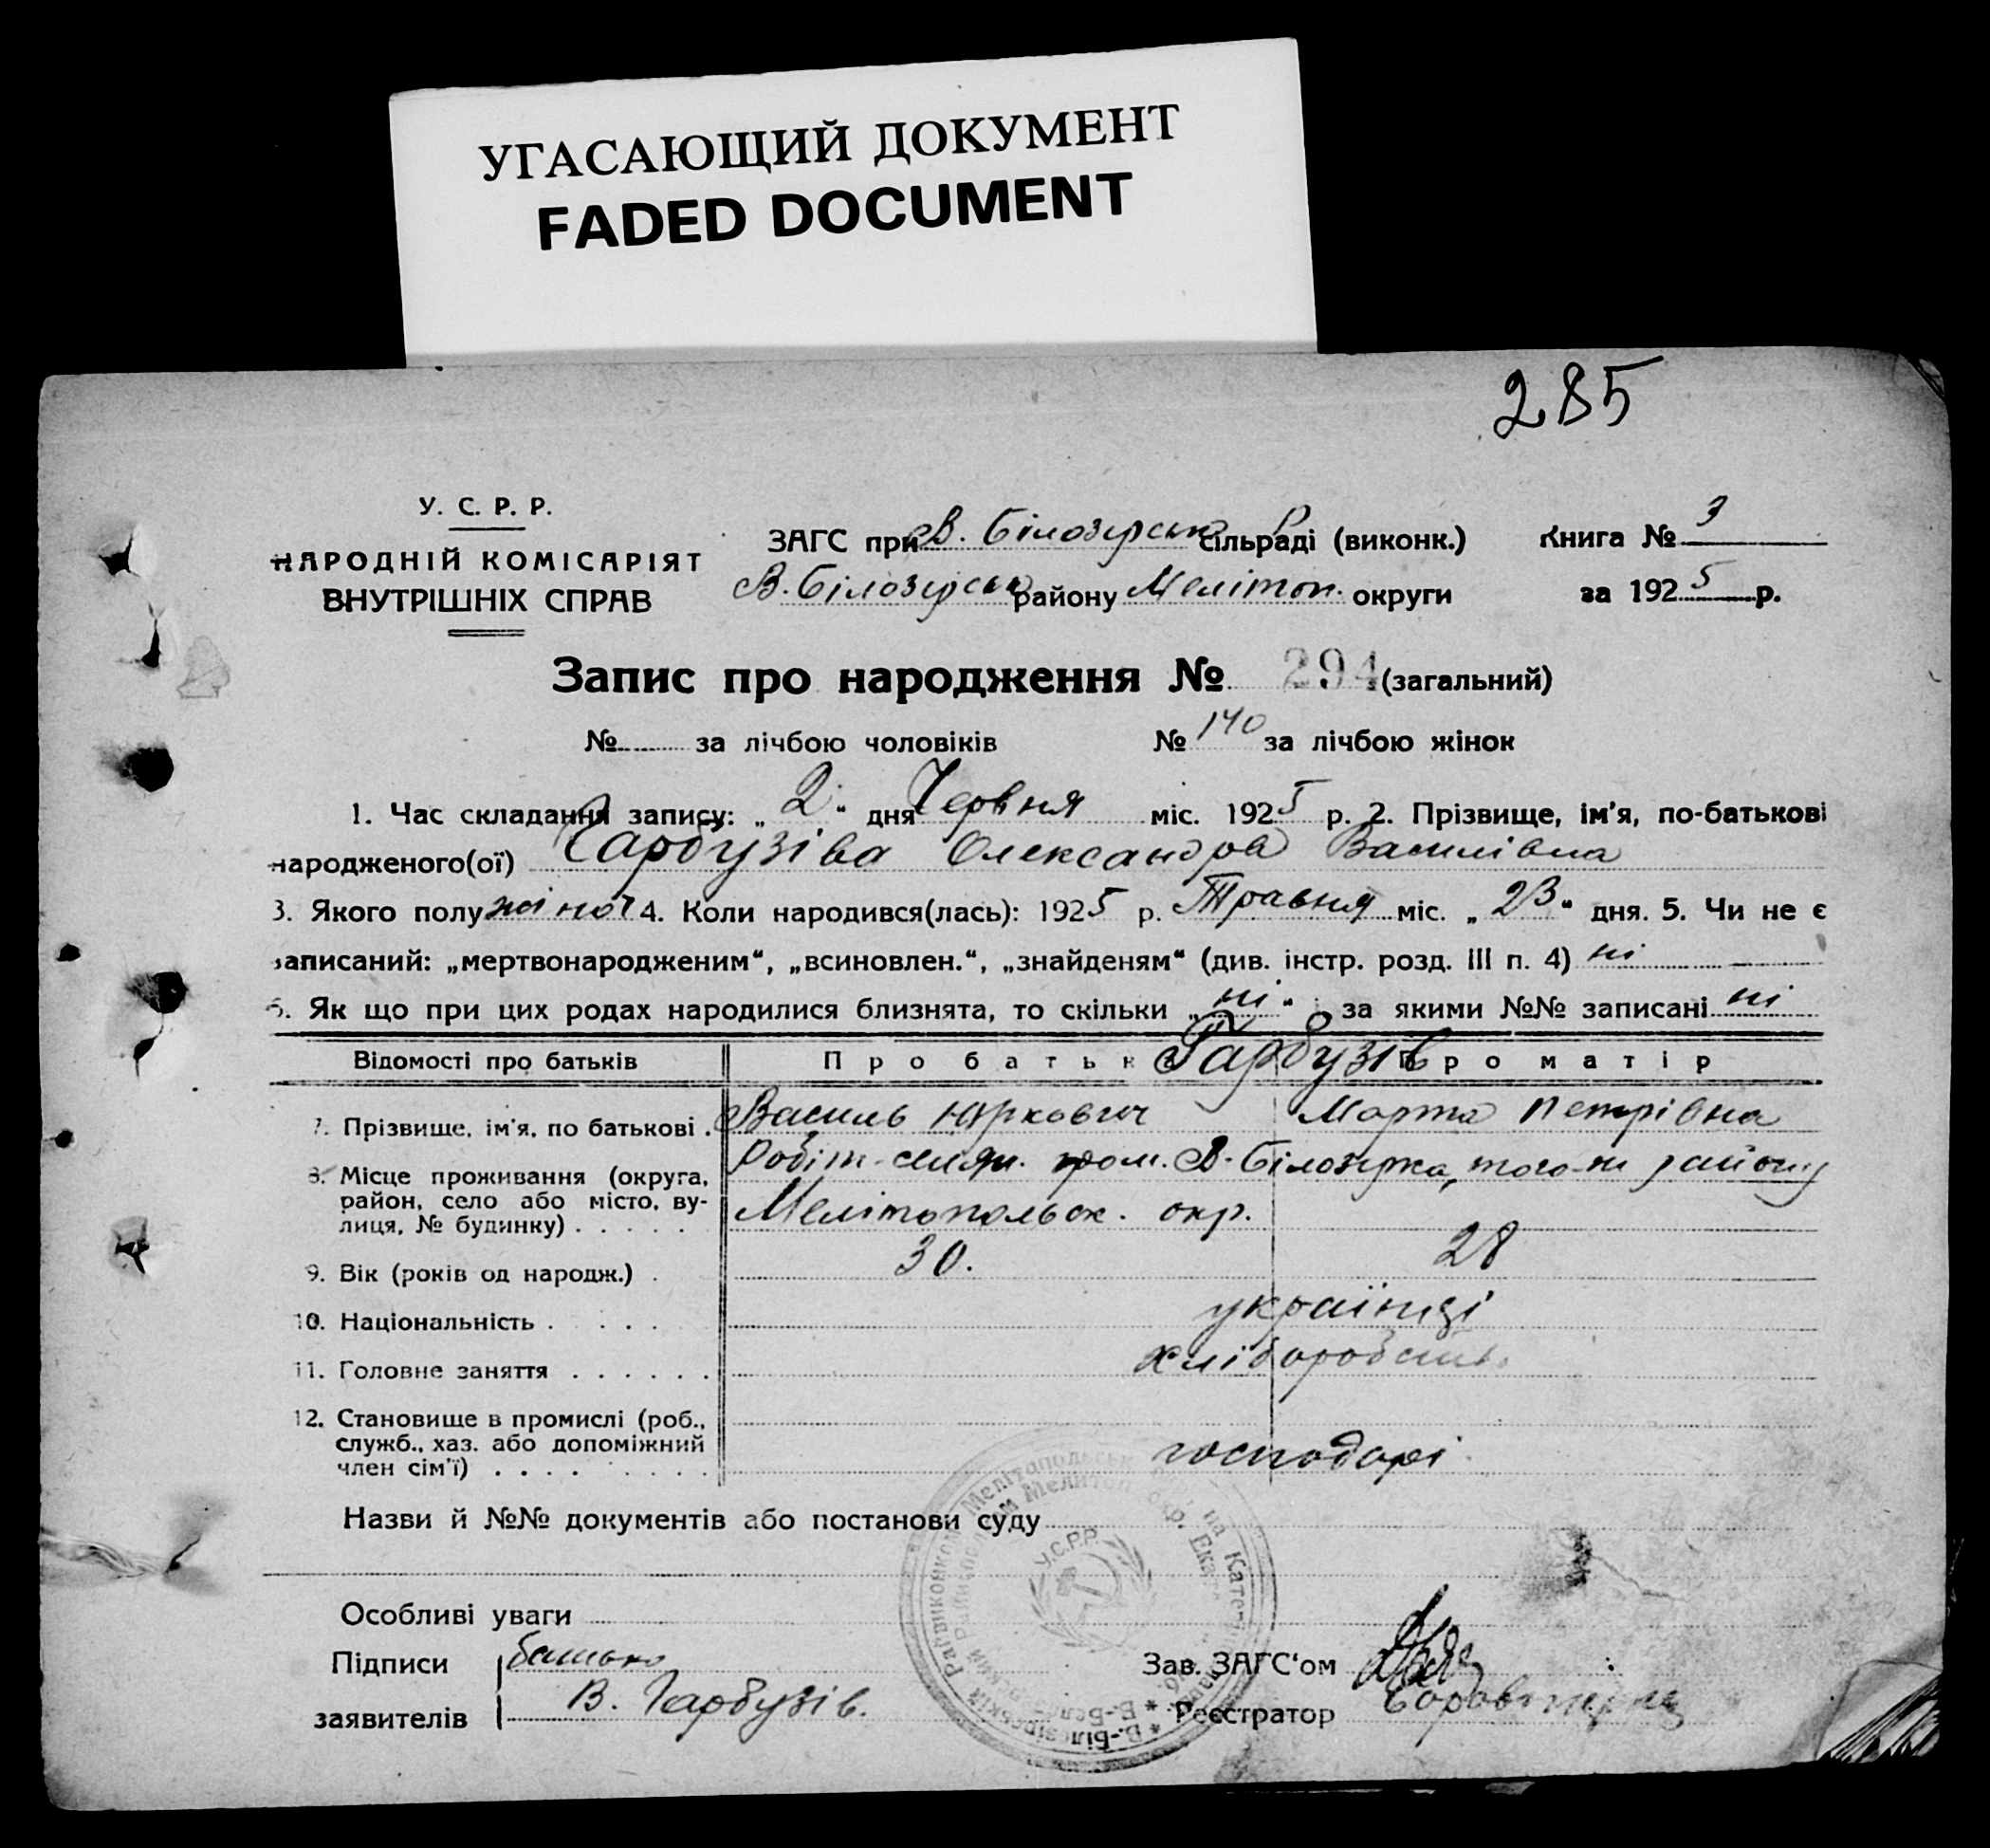 УГАСАЮЩИЙ ДОКУМЕНТ
FADED DOCUMENT
285
У. С. Р. Р.
НАРОДНІЙ КОМІСАРІЯТ
ВНУТРІШНІХ СПРАВ
ЗАГС при В. Білозерськ сільраді (виконк.)
В. Білозерськ району Мелітоп. округи
Книга № 3
за 1925 р.
Запис про народження № 294 (загальний)
№ за лічбою чоловіків № 140 за лічбою жінок
1. Час складання запису: „2“ дня Червня міс. 1925 р. 2. Прізвище, ім'я, по-батькові
народженого(ої) Гарбузіва Олександра Василівна
3. Якого полу жіної 4. Коли народився(лась): 1925 р. Травня міс. „23“ дня. 5. Чи не є
записаний: „мертвонародженим“, „всиновлен.“, „знайденям“ (див. інстр. розд. III п. 4) ні
6. Як що при цих родах народилися близнята, то скільки „ні“ за якими №№ записані ні
Відомості про батьків Про батьк Гарбузів Про матір
7. Прізвище, ім'я, по батькові . Василь Юркович Марта Петрівна
8. Місце проживання (округа, Робіт-селян. гром. В-Білозерка, того-ж району
район, село або місто, ву-
лиця, № будинку) . . . . . Мелітопольск. окр.
9. Вік (років од народж.) . 30. 28
10. Національність . . . . . українці
11. Головне заняття . . . . . . хлібороб
12. Становище в промислі (роб.,
служб., хаз. або допоміжний
член сім'ї) . . . . . . . . . господарі
Назви й №№ документів або постанови суду
У.С.Р.Р.
Особливі уваги
Підписи батько
заявителів В. Гарбузів.
Зав. ЗАГС'ом
Реєстратор